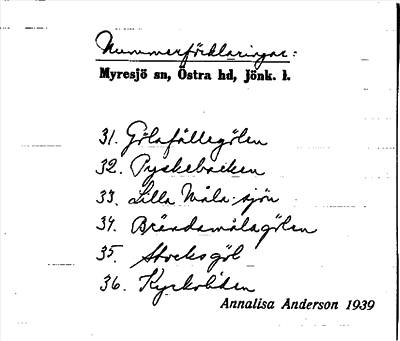 Nummerförklaringar:
Myresjö sn, Östra hd, Jönk. l.
31. Gölafällegölen
32. Pyskebacken
33. Lilla Måla-sjön
34. Brändamålagölen
35. Stocksgöl
36. Kyrkoliden
Annalisa Anderson 1939